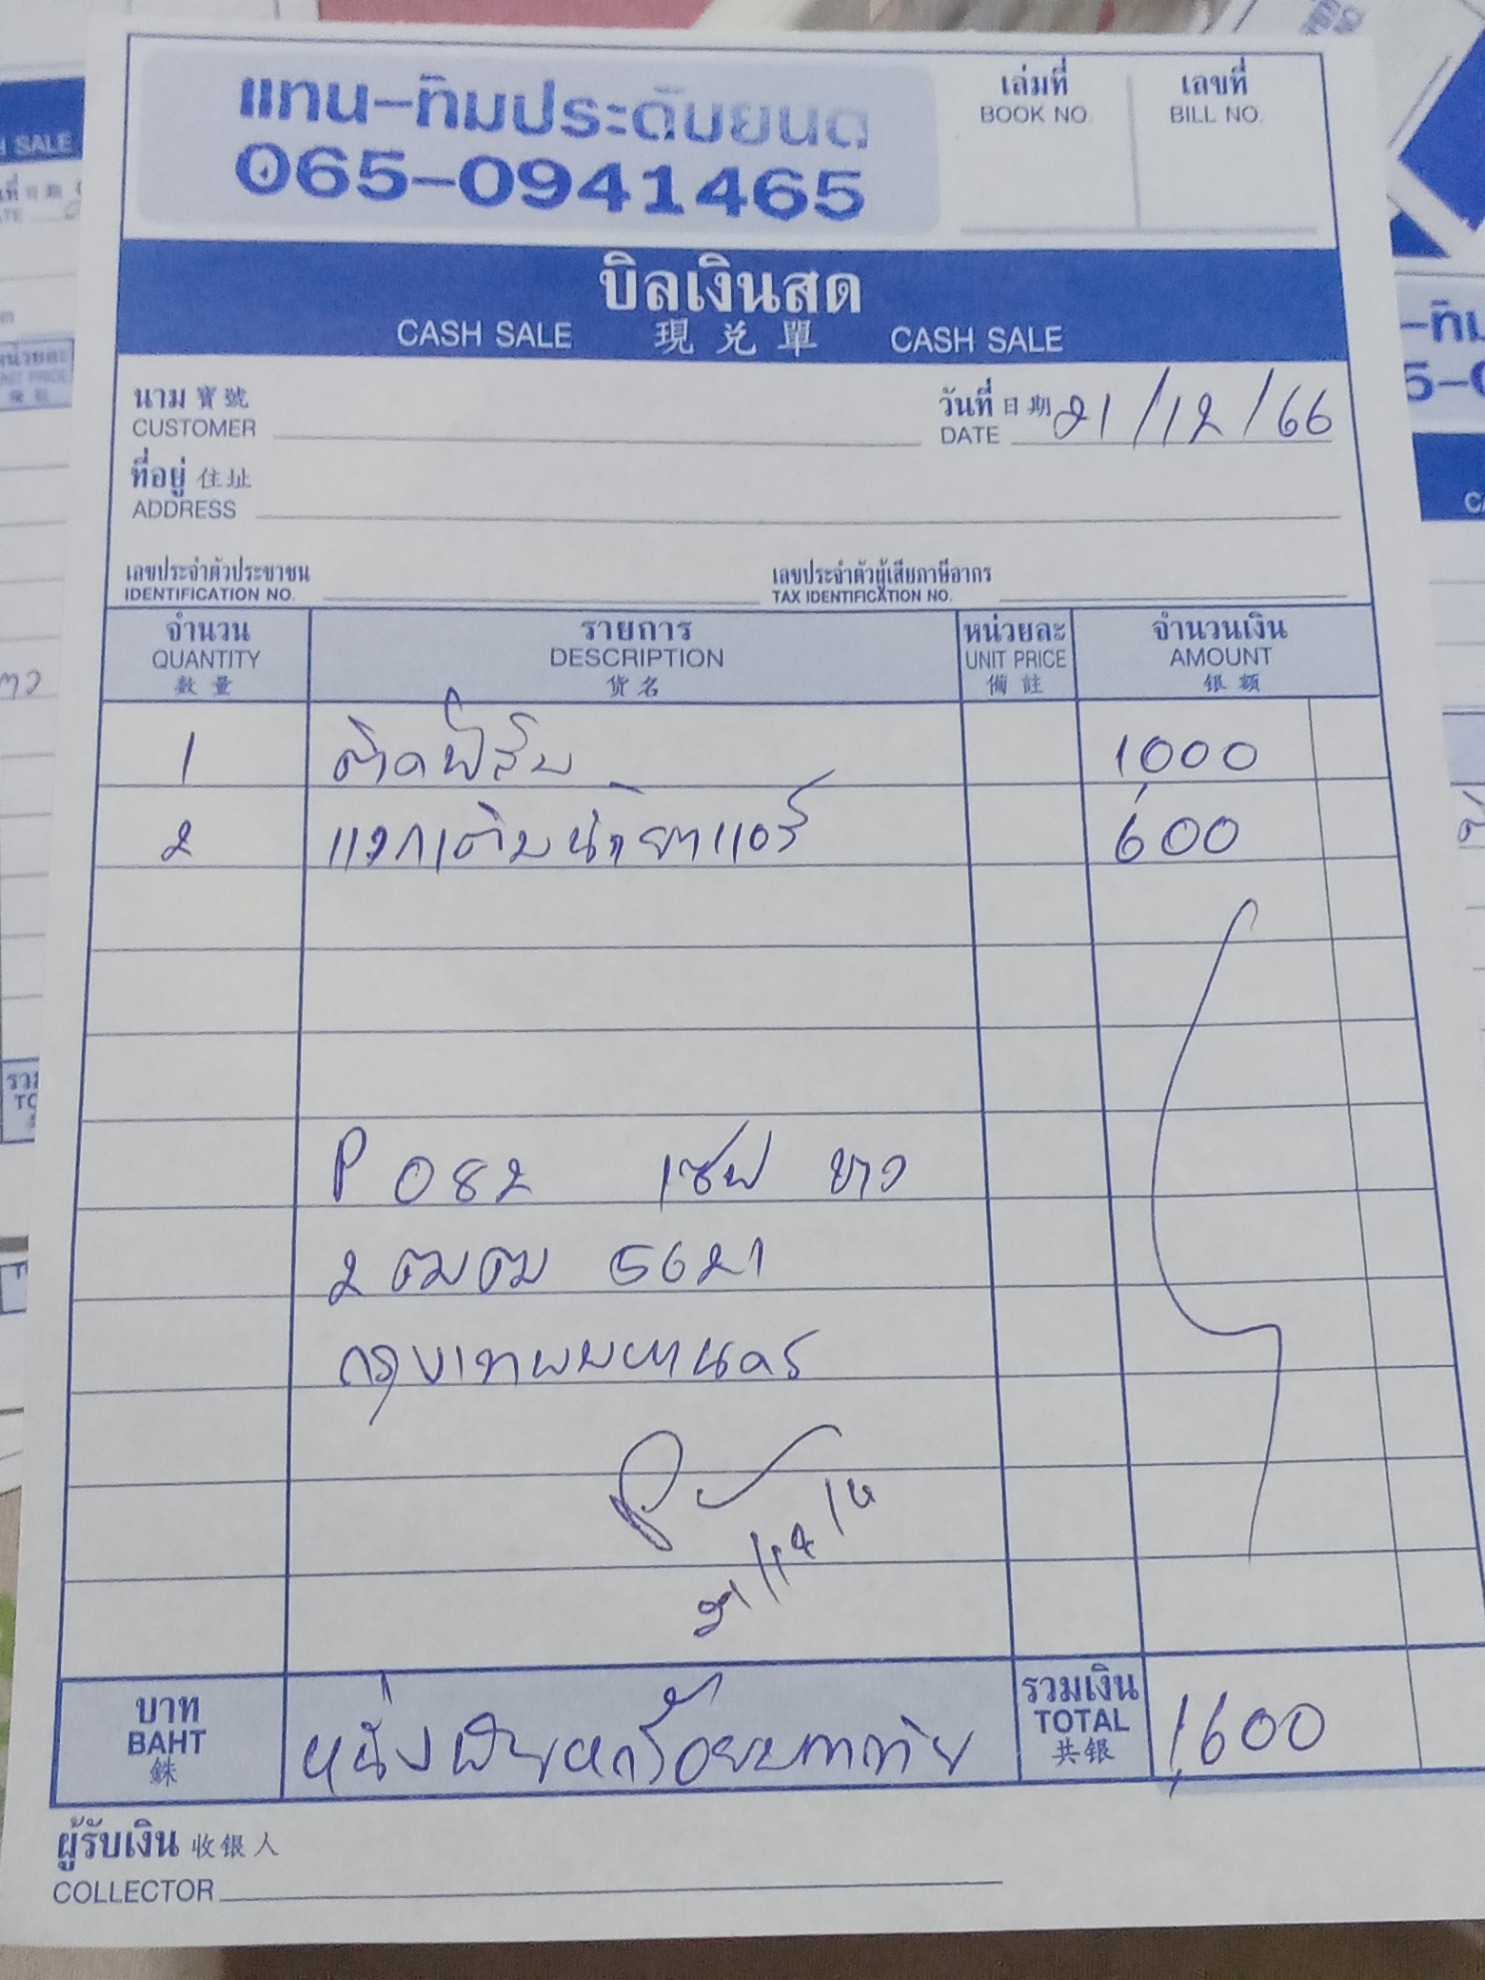 แทน-ทิมประดับยนต
065-0941465
เล่มที่ เลขที่
BOOK NO. BILL NO.
บิลเงินสด
CASH SALE 現兌單 CASH SALE
นาม 寶號 วันที่ 日期 21/12/66
CUSTOMER DATE
ที่อยู่ 住址
ADDRESS
เลขประจำตัวประชาชน เลขประจำตัวผู้เสียภาษีอากร
IDENTIFICATION NO. TAX IDENTIFICATION NO.
จำนวน รายการ หน่วยละ จำนวนเงิน
QUANTITY DESCRIPTION UNIT PRICE AMOUNT
數量 货名 備註 银额
1 ติดฟิล์ม 1,000
2 แวกเติมน้ำยาแอร์ 600
P 082 เชฟ ขาว
2 ฒฒ 5621
กรุงเทพมหานคร
21/12/66
บาท หนึ่งพันหกร้อยบาทถ้วน รวมเงิน 1,600
BAHT TOTAL
銖 共银
ผู้รับเงิน 收银人
COLLECTOR